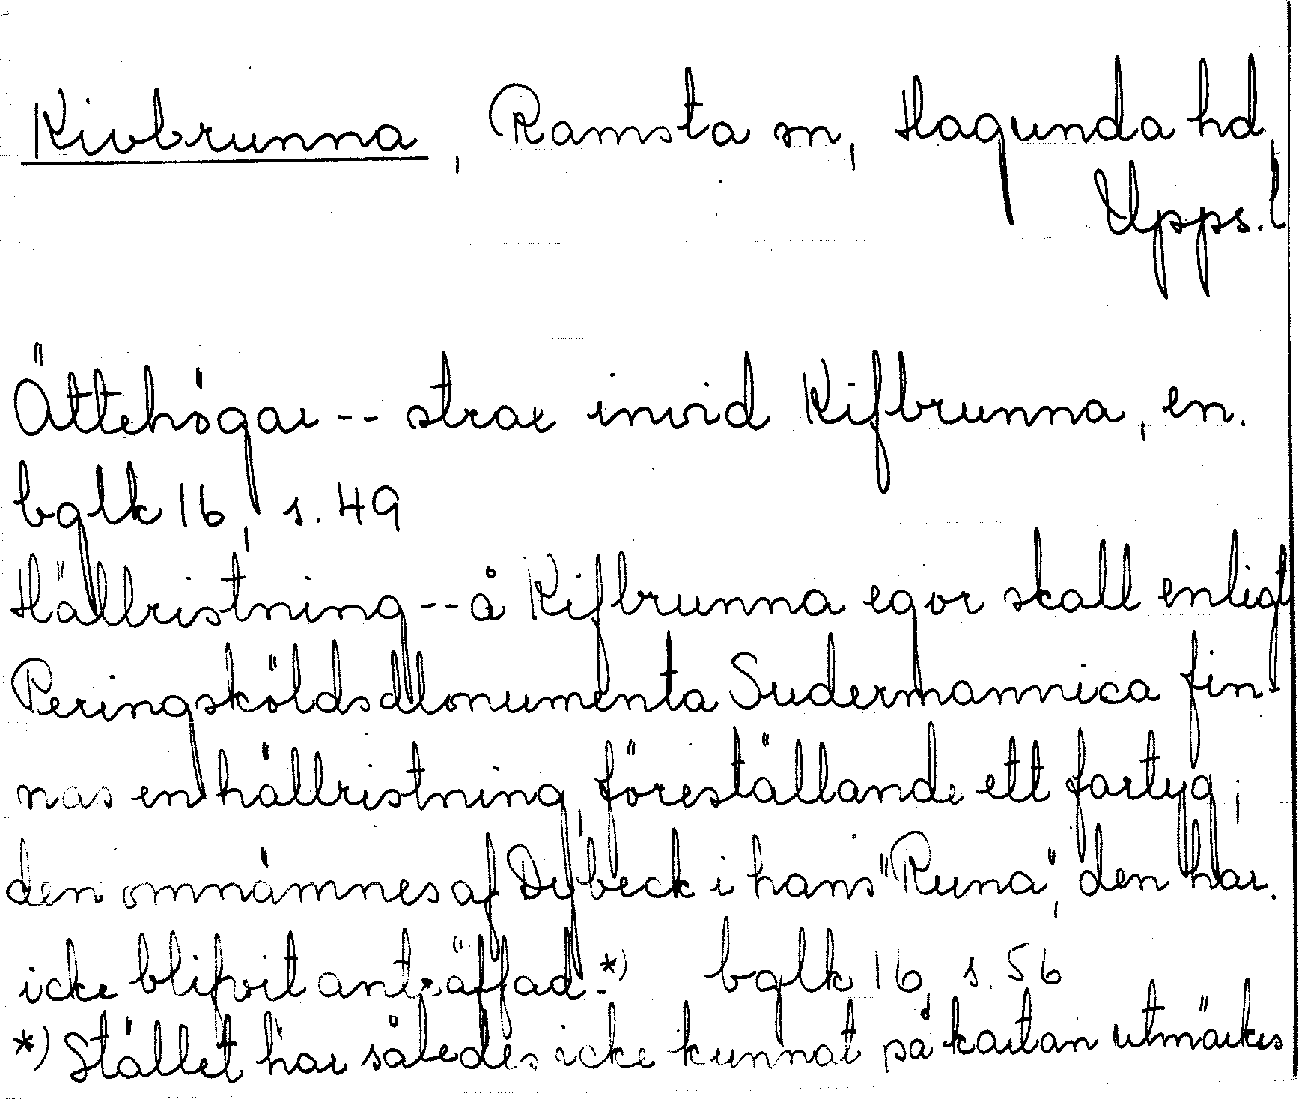 Kivbrunna, Ramsta sn, Hagunda hd,
Upps. l
Ättehögar -- strax invid Kifbrunna, en.
bglk 16, s. 49
Hällristning -- å Kifbrunna egor skall enligt
Peringskölds Monumenta Sudermannica fin-
nas en hällristning, föreställande ett fartyg;
den omnämnes af Dybeck i hans "Runa", den har
icke blifvit anträffad.*) bglk 16, s. 56
*) Stället har således icke kunnat på kartan utmärkes